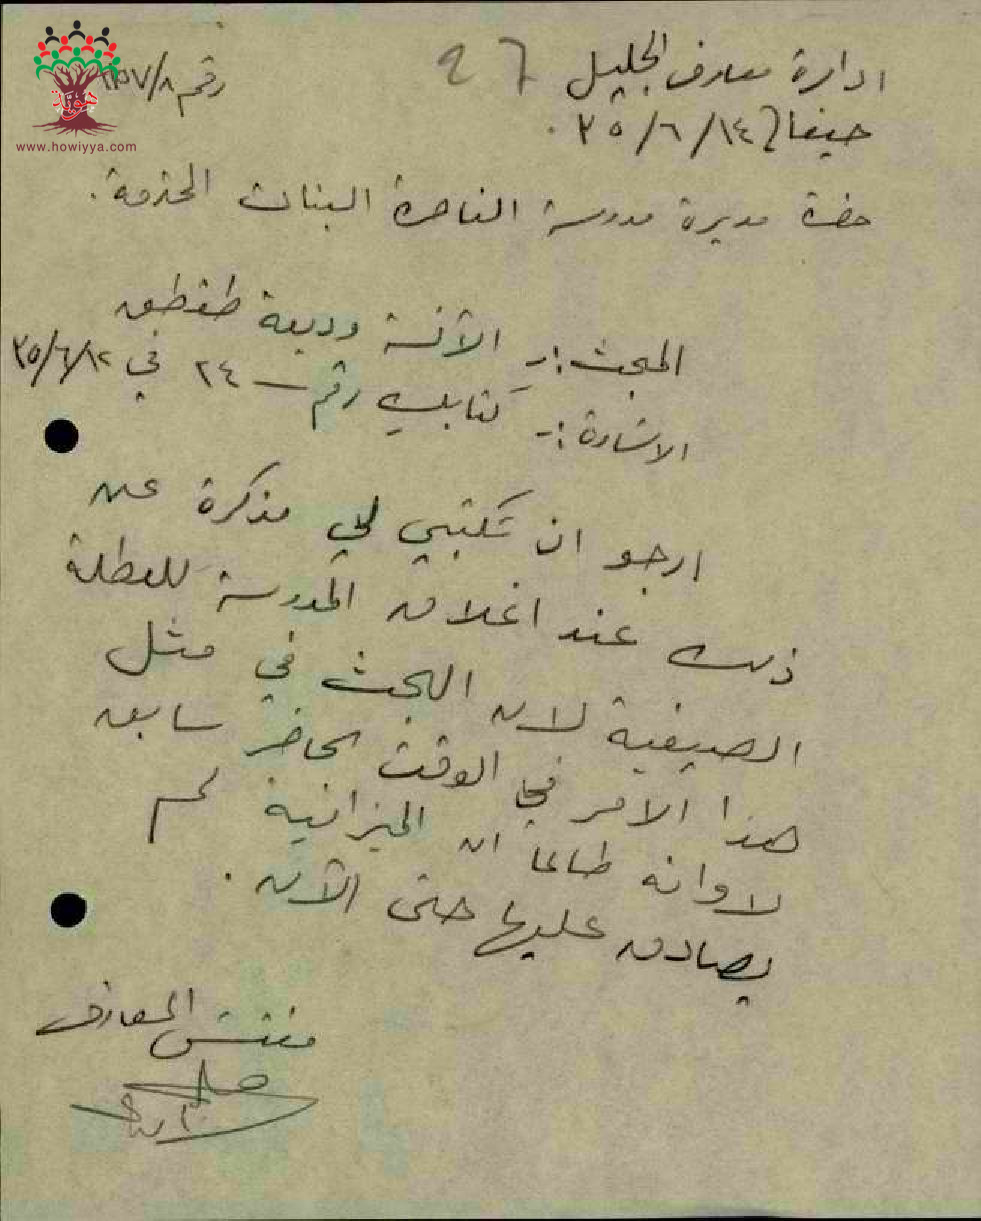 ادارة معارف الجليل 26 رقم ٨/
حيفا في ١٤/٦/٣٥.
هوية
www.howiyya.com
حضرة مديرة مدرسة الناصرة البنات المحترمة.
المبحث :- الآنسة وديعة طقطق
الاشارة :- كتابك رقم ٢٤ في ١٢/٦/٣٥
ارجو ان تكتبي لي مذكرة عن
ذلك عند اغلاق المدرسة للعطلة
الصيفية لان البحث في مثل
هذا الامر في الوقت الحاضر سابق
لاوانه طالما ان الميزانية لم
يصادق عليها حتى الآن.
مفتش المعارف